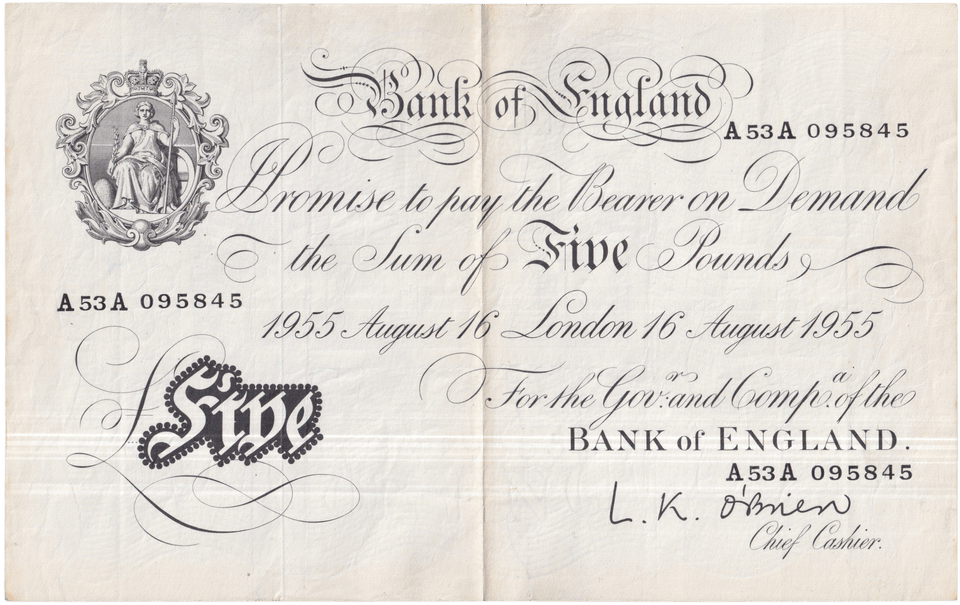 Bank of England
A53A 095845
I Promise to pay the Bearer on Demand
the Sum of Five Pounds
A53A 095845
1955 August 16 London 16 August 1955
£Five
For the Gov.r and Comp.a of the
BANK of ENGLAND.
A53A 095845
L. K. O'Brien
Chief Cashier.